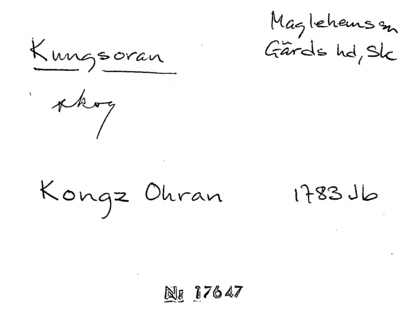 Kungsoran
Maglehems sn
Gärds hd, Sk
skog
Kongz Ohran 1783 Jb
No 17647